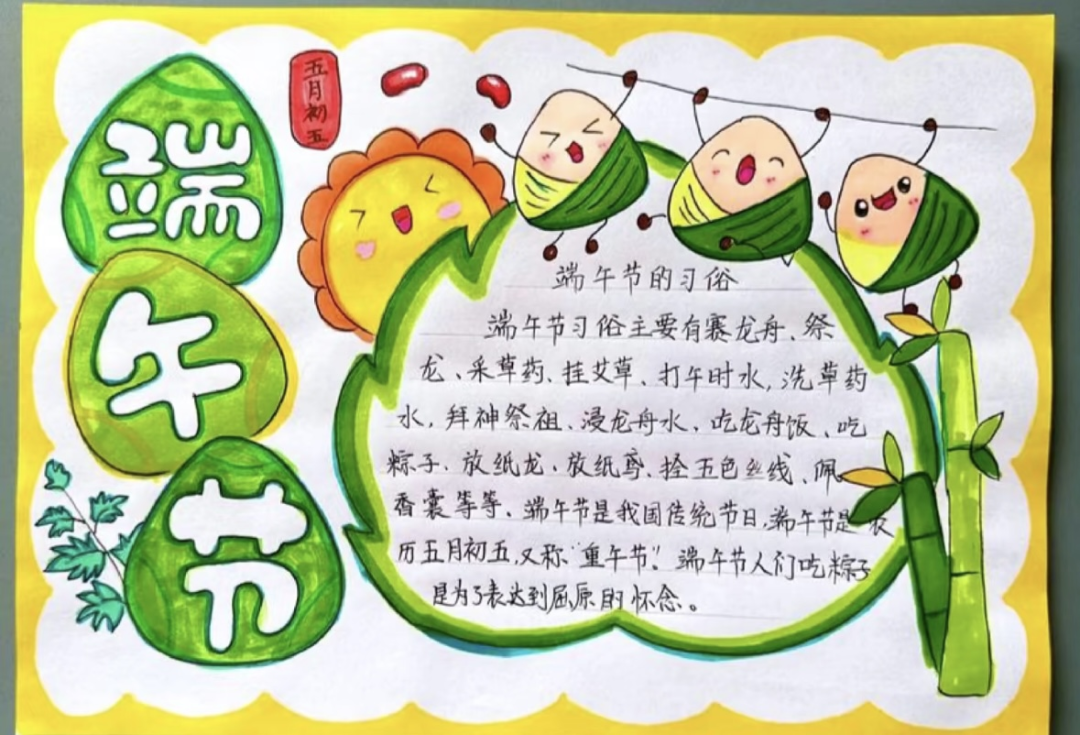 端午节
五月初五
端午节的习俗
端午节习俗主要有赛龙舟、祭
龙、采草药、挂艾草、打午时水,洗草药
水,拜神祭祖、浸龙舟水、吃龙舟饭、吃
粽子、放纸龙、放纸鸢、拴五色丝线、佩
香囊等等、端午节是我国传统节日,端午节是农
历五月初五,又称“重午节”!端午节人们吃粽子
是为了表达到屈原的怀念。